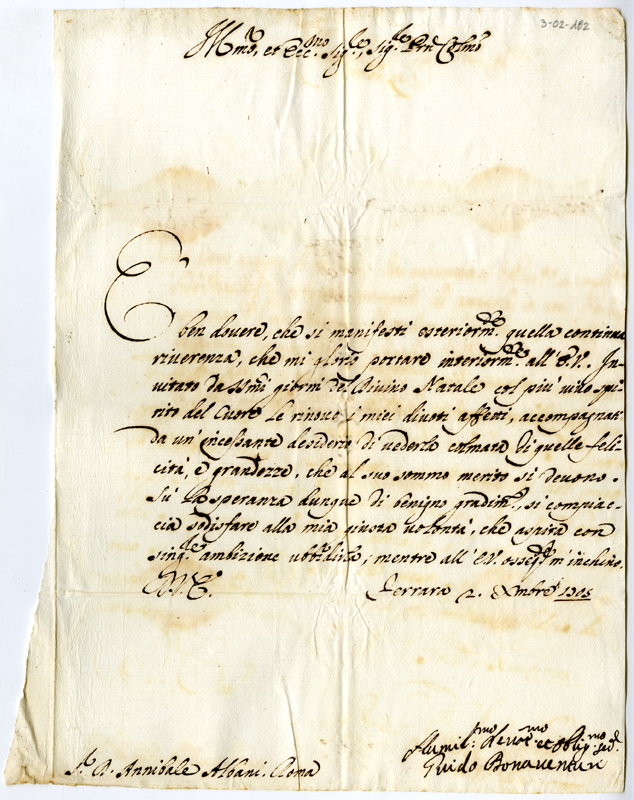 3-02-182
Ill.mo, et Ecc.mo Sig.re, Sig.re Prñ Col.mo
E ben douere, che si manifesti esteriorm.te quella continua
riuerenza, che mi glorio portare interiorm.te all'E.V. In-
uitato da SS.mi giorni del Diuino Natale col più uiuo spi-
rito del Cuore Le rinouo i miei diuoti affetti, accompagnati
da un'incessante desiderio di uederla colmata di quelle feli-
cità, e grandezze, che al suo sommo merito si deuono.
Sù la speranza dunque di benigno gradim.to, si compiac-
cia sodisfare alla mia giusta uolontà, che aspira con
sing.re ambizione ubbidirla; mentre all'E.V. osseq.te m'inchino.
D.V.E.
Ferrara 2. Xmbre 1705
Humil.mo Seru.re et Oblig.mo
Guido Bonauenturi
S.r D. Annibale Albani. Roma